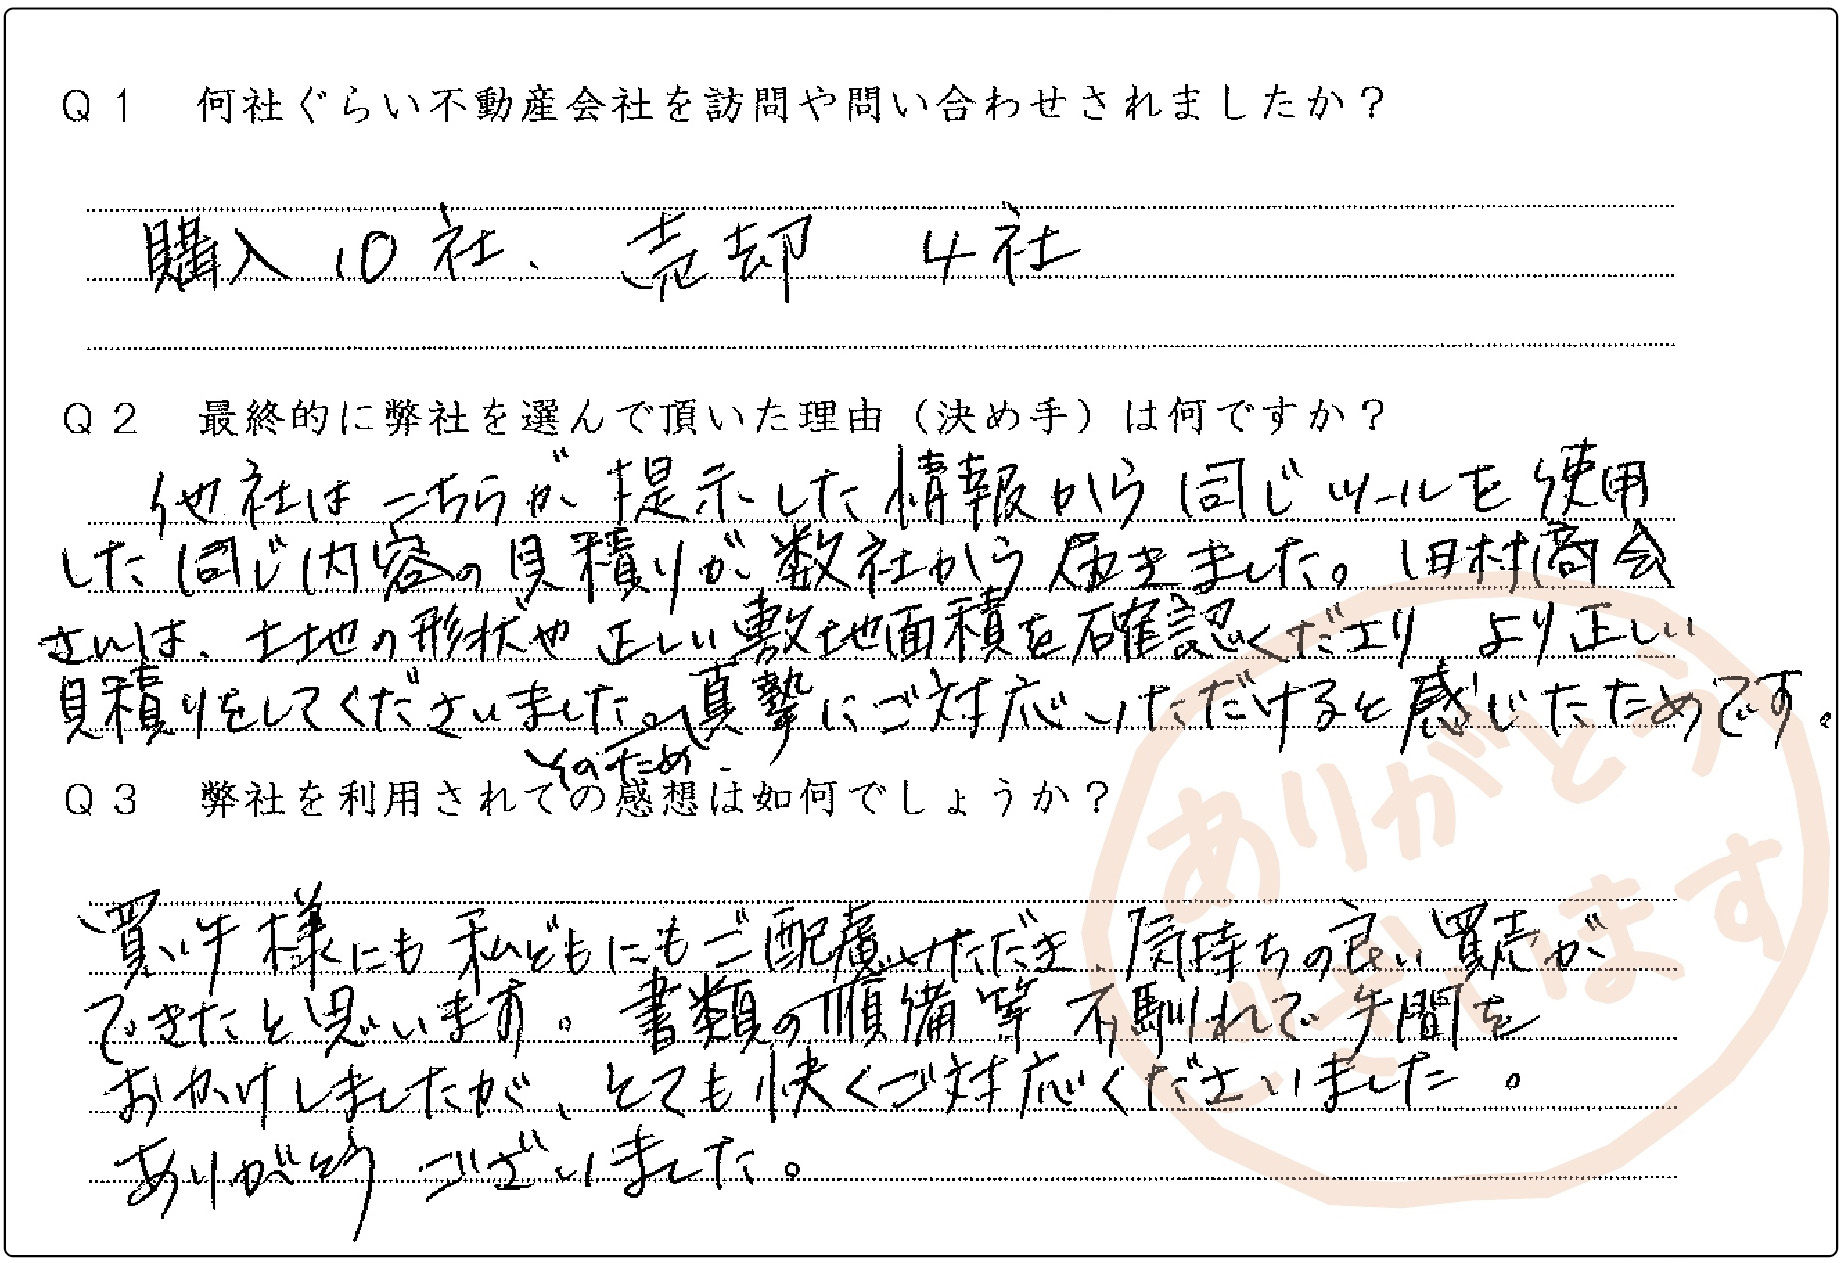 Q1 何社ぐらい不動産会社を訪問や問い合わせされましたか？
購入10社、売却 4社
Q2 最終的に弊社を選んで頂いた理由（決め手）は何ですか？
他社はこちらが提示した情報から同じツールを使用
した同じ内容の見積りが数社から届きました。田村商会
さんは、土地の形状や正しい敷地面積を確認くださり より正しい
見積りをしてくださいました。真摯にご対応いただけると感じたためです。
そのため、
Q3 弊社を利用されての感想は如何でしょうか？
買い手様にも私どもにもご配慮いただき、気持ちの良い買売が
できたと思います。書類の準備等不馴れで手間を
おかけしましたが、とても快くご対応くださいました。
ありがとうございました。
ありがとう
ございます